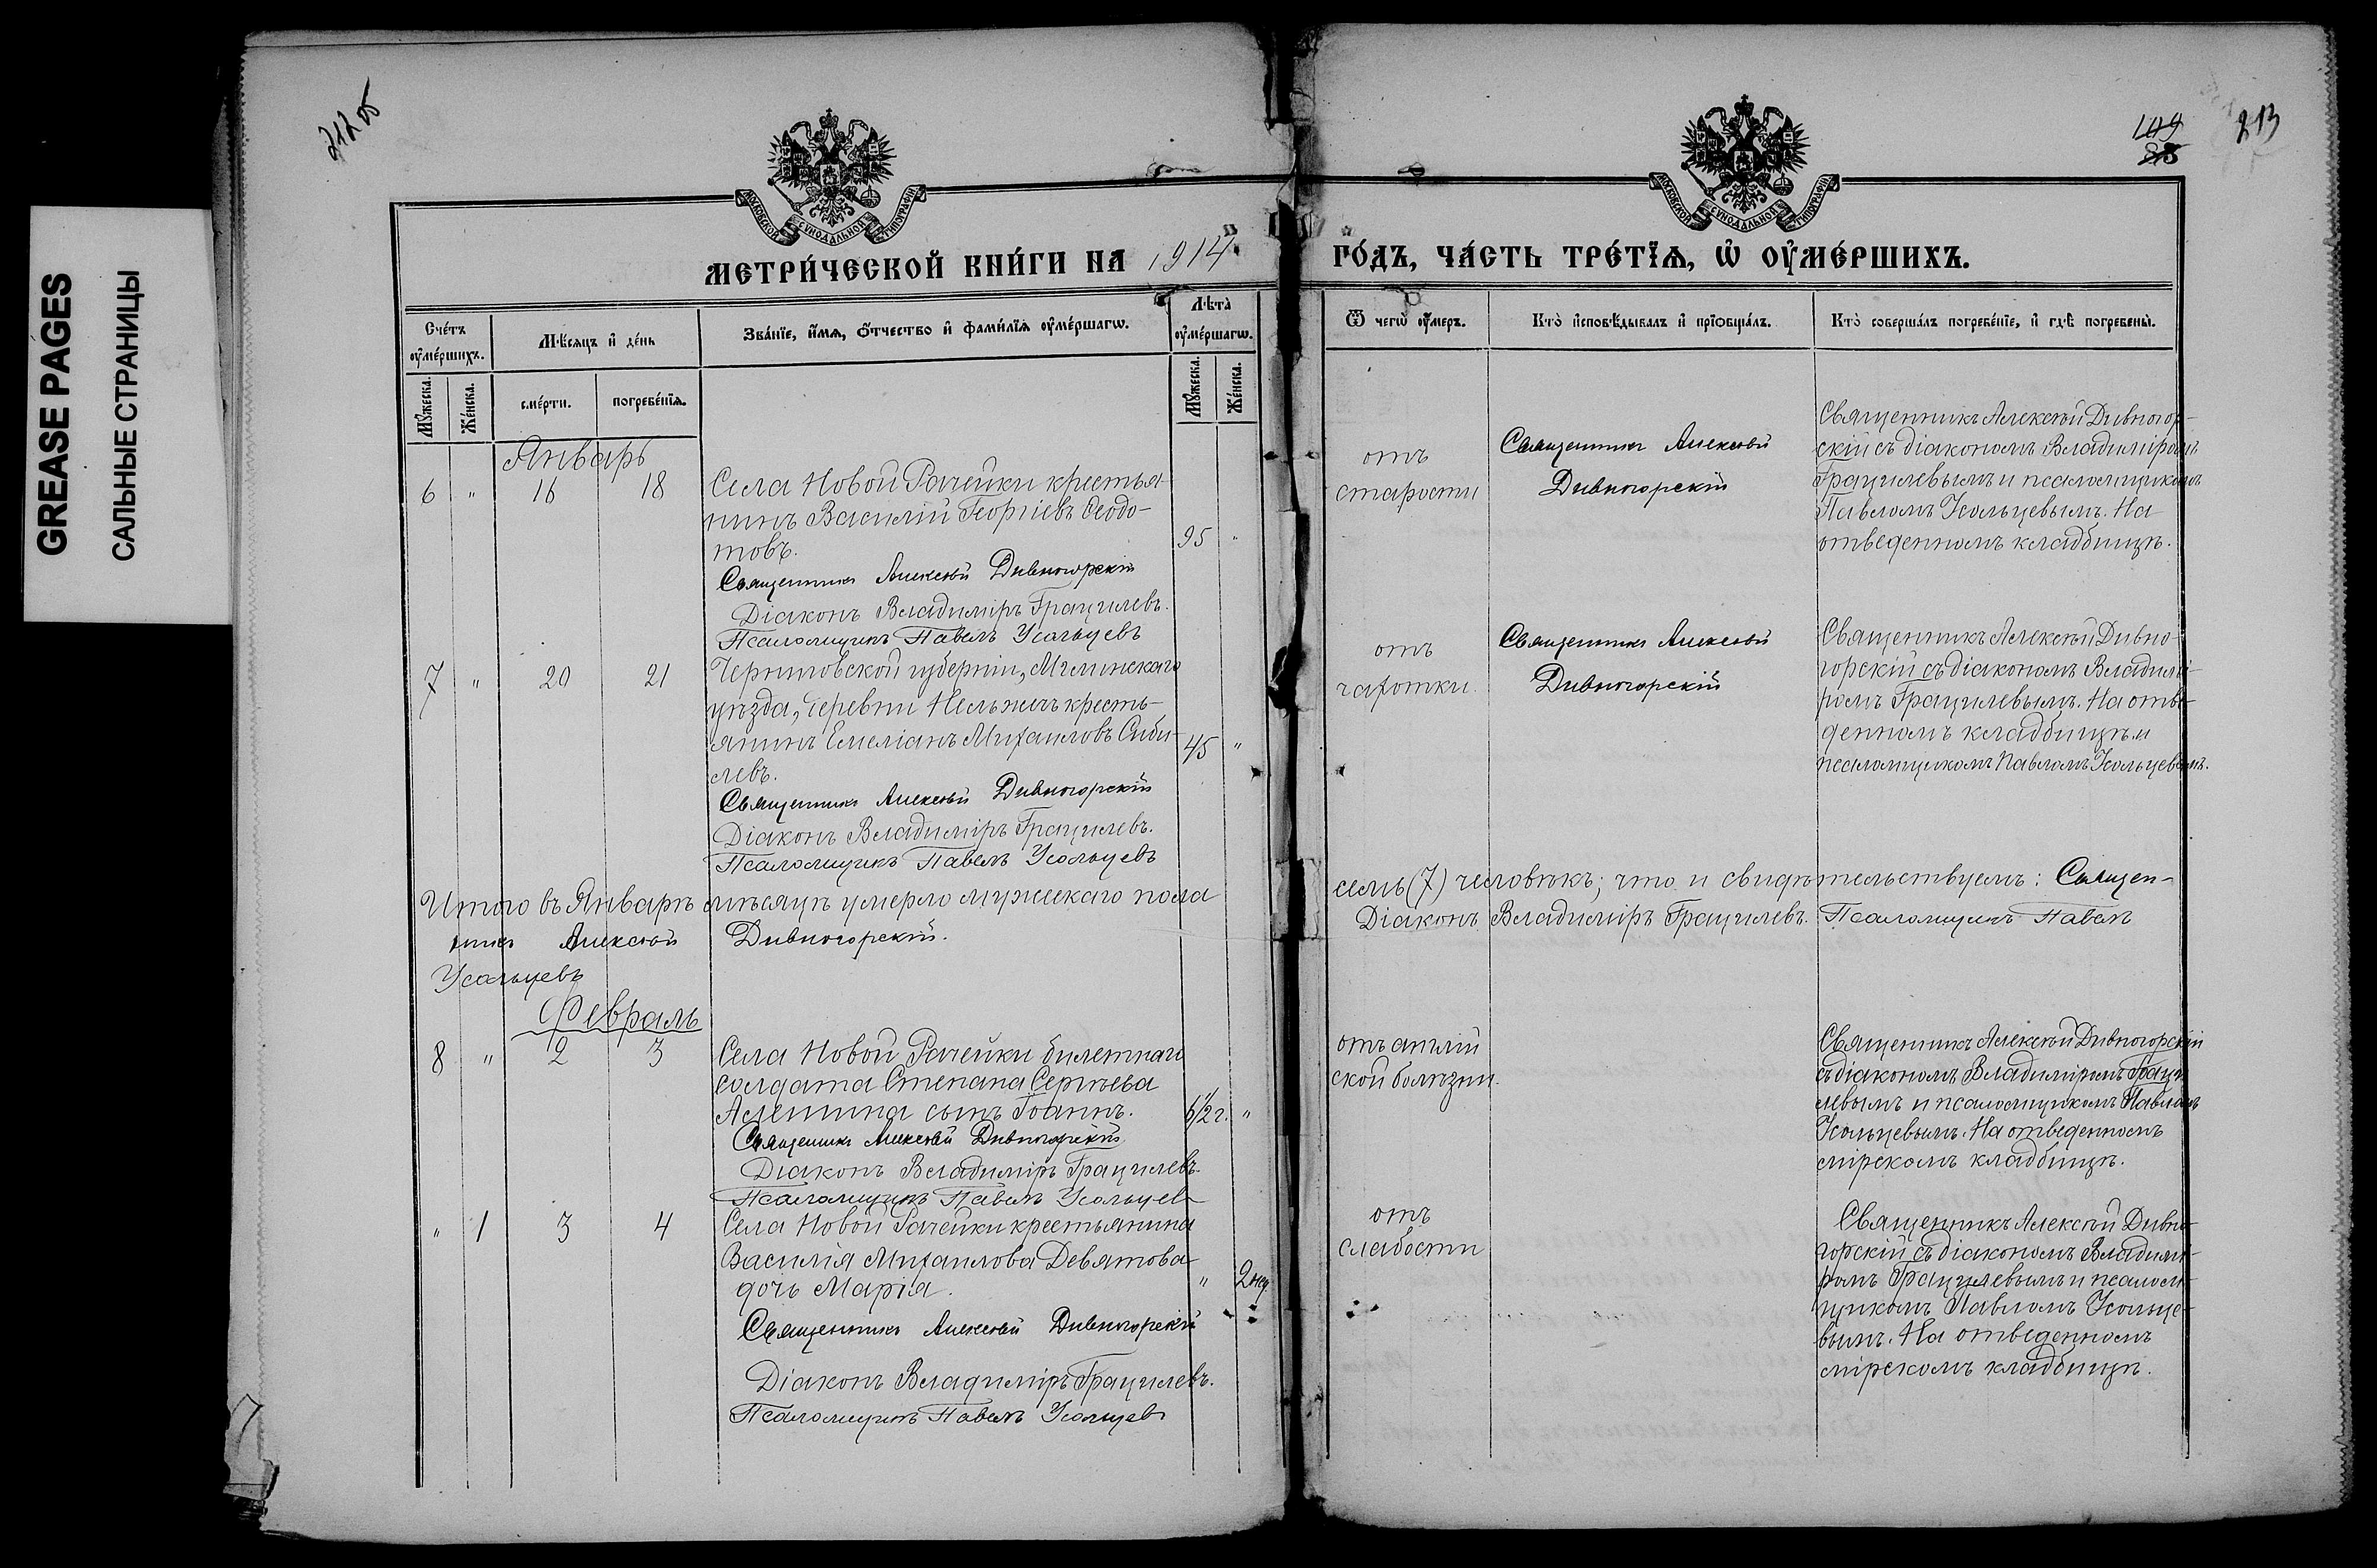 GREASE PAGES
САЛЬНЫЕ СТРАНИЦЫ
212 об
109
213
МОСКОВСКОЙ СѴНОДАЛЬНОЙ ТИПОГРАФІИ
МОСКОВСКОЙ СѴНОДАЛЬНОЙ ТИПОГРАФІИ
МЕТРИ́ЧЕСКОЙ КНИ́ГИ НА 1914
ГО́ДЪ, ЧА́СТЬ ТРЕ́ТЇѦ, Ѡ҆ ОУ҆МЕ́РШИХЪ.
Сче́тъ оу҆ме́ршихъ.
Мѣ́сѧцъ и҆ де́нь
Зва́нїе, и҆́мѧ, ѻ҆́тчество и҆ фами́лїѧ оу҆ме́ршагѡ.
Лѣ́та оу҆ме́ршагѡ.
Ѿ чегѡ̀ оу҆́меръ.
Кто̀ и҆сповѣ́дывалъ и҆ прїѡбща́лъ.
Кто̀ соверша́лъ погребе́нїе, и҆ гдѣ̀ погребены̀.
Мꙋ́жеска.
Же́нска.
сме́рти.
погребе́нїѧ.
Мꙋ́жеска.
Же́нска.
Январь
6 " 16 18
Села Новой Рачейки крестья-
нинъ Василій Георгіевъ Ѳедо-
товъ.
95 "
Священникъ Алексѣй Дивногорскій
Діаконъ Владиміръ Грацилевъ.
Псаломщикъ Павелъ Усольцевъ
отъ
старости
Священникъ Алексѣй
Дивногорскій
Священникъ Алексѣй Дивногор-
скій съ діакономъ Владиміромъ
Грацилевымъ и псаломщикомъ
Павломъ Усольцевымъ. На
отведенномъ кладбищѣ.
7 " 20 21
Черниговской губерніи, Мглинскаго
уѣзда, деревни Нельжичъ кресть-
янинъ Емеліанъ Михаиловъ Сиби-
левъ.
45 "
Священникъ Алексѣй Дивногорскій
Діаконъ Владиміръ Грацилевъ.
Псаломщикъ Павелъ Усольцевъ
отъ
чахотки.
Священникъ Алексѣй
Дивногорскій
Священникъ Алексѣй Дивно-
горскій съ діакономъ Владимі-
ромъ Грацилевымъ. На отве-
денномъ кладбищѣ. и
псаломщикомъ Павломъ Усольцевымъ.
Итого въ Январѣ мѣсяцѣ умерло мужескаго пола
семь (7) человѣкъ; что и свидѣтельствуемъ: Священ-
никъ Алексѣй Дивногорскій.
Діаконъ Владиміръ Грацилевъ. Псаломщикъ Павелъ
Усольцевъ
Февраль
8 " 2 3
Села Новой Рачейки билетнаго
солдата Степана Сергѣева
Алешина сынъ Іоаннъ.
"
Священникъ Алексѣй Дивногорскій
Діаконъ Владиміръ Грацилевъ.
Псаломщикъ Павелъ Усольцевъ
отъ англій
ской болѣзни.
Священникъ Алексѣй Дивногорскій
съ діакономъ Владиміромъ Граци
левымъ и псаломщикомъ Павломъ
Усольцевымъ. На отведенномъ
мірскомъ кладбищѣ.
" 1 3 4
Села Новой Рачейки крестьянина
Василія Михаилова Девятова
дочь Марія.
" 2 нед.
Священникъ Алексѣй Дивногорскій
Діаконъ Владиміръ Грацилевъ.
Псаломщикъ Павелъ Усольцевъ
отъ
слабости
Священникъ Алексѣй Дивно-
горскій съ діакономъ Владимі-
ромъ Грацилевымъ и псалом-
щикомъ Павломъ Усольце-
вымъ. На отведенномъ
мірскомъ кладбищѣ.